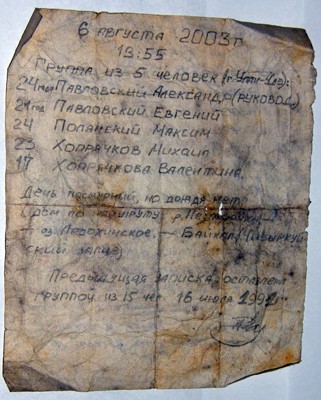 6 августа 2003г
13:55
Группа из 5 человек (г. Улан-Удэ):
24год Павловский Александр (руковод.)
21год Павловский Евгений
24 Поланский Максим
23 Хопрячков Михаил
17 Хопрячкова Валентина.
День пасмурный, но дождя нет
Идём по маршруту р.
– оз. – Байкал (Чивыркуй
ский залив)
Предыдущая записка оставлена
группой из 15 чел 16 июля 1992г